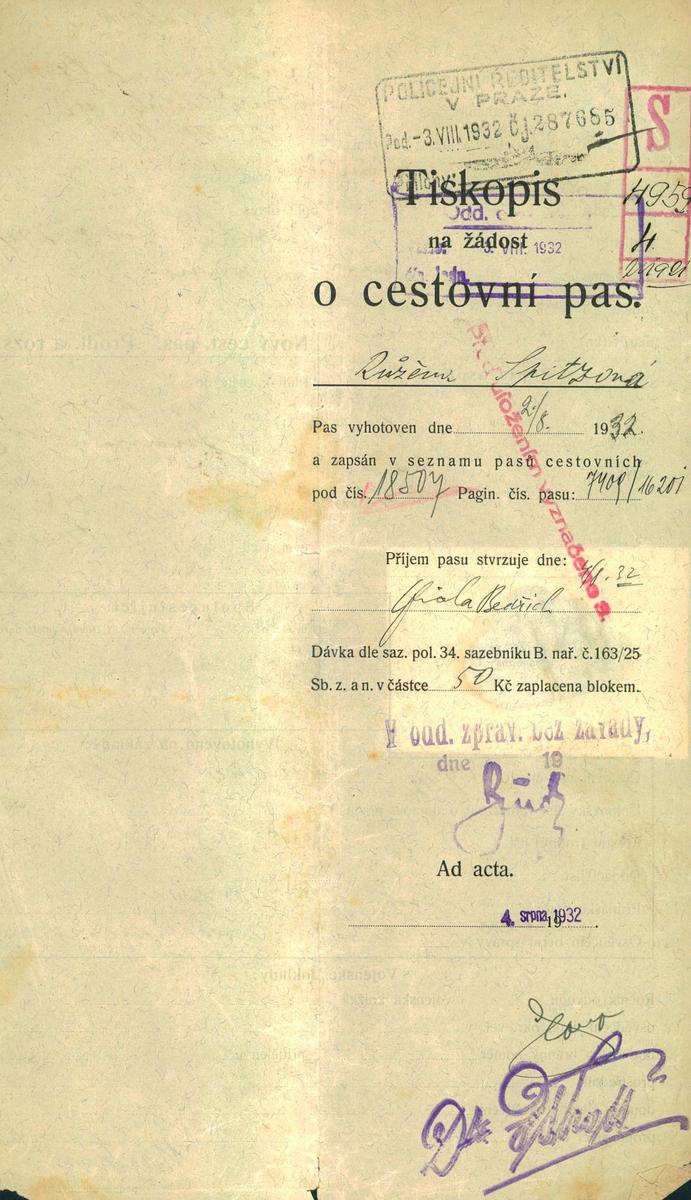 POLICEJNÍ ŘEDITELSTVÍ
V PRAZE.
Pod. -3.VIII.1932 Č.j. 287685
S
4959
4
Tiskopis
Odd.
na žádost
3. VIII. 1932
o cestovní pas.
Růžena Spitzová
Pas vyhotoven dne 2/8. 1932.
a zapsán v seznamu pasů cestovních
pod čís. 18507 Pagin. čís. pasu: 7409/16201
Před uložením vyznačeno s.
Příjem pasu stvrzuje dne: 4/8. 32
Fiala Bedřich
Dávka dle saz. pol. 34. sazebníku B. nař. č. 163/25
Sb. z. a n. v částce 50 Kč zaplacena blokem.
V odd. zpráv. bez závady,
dne 19
Ad acta.
4. srpna 1932
19
Dr.